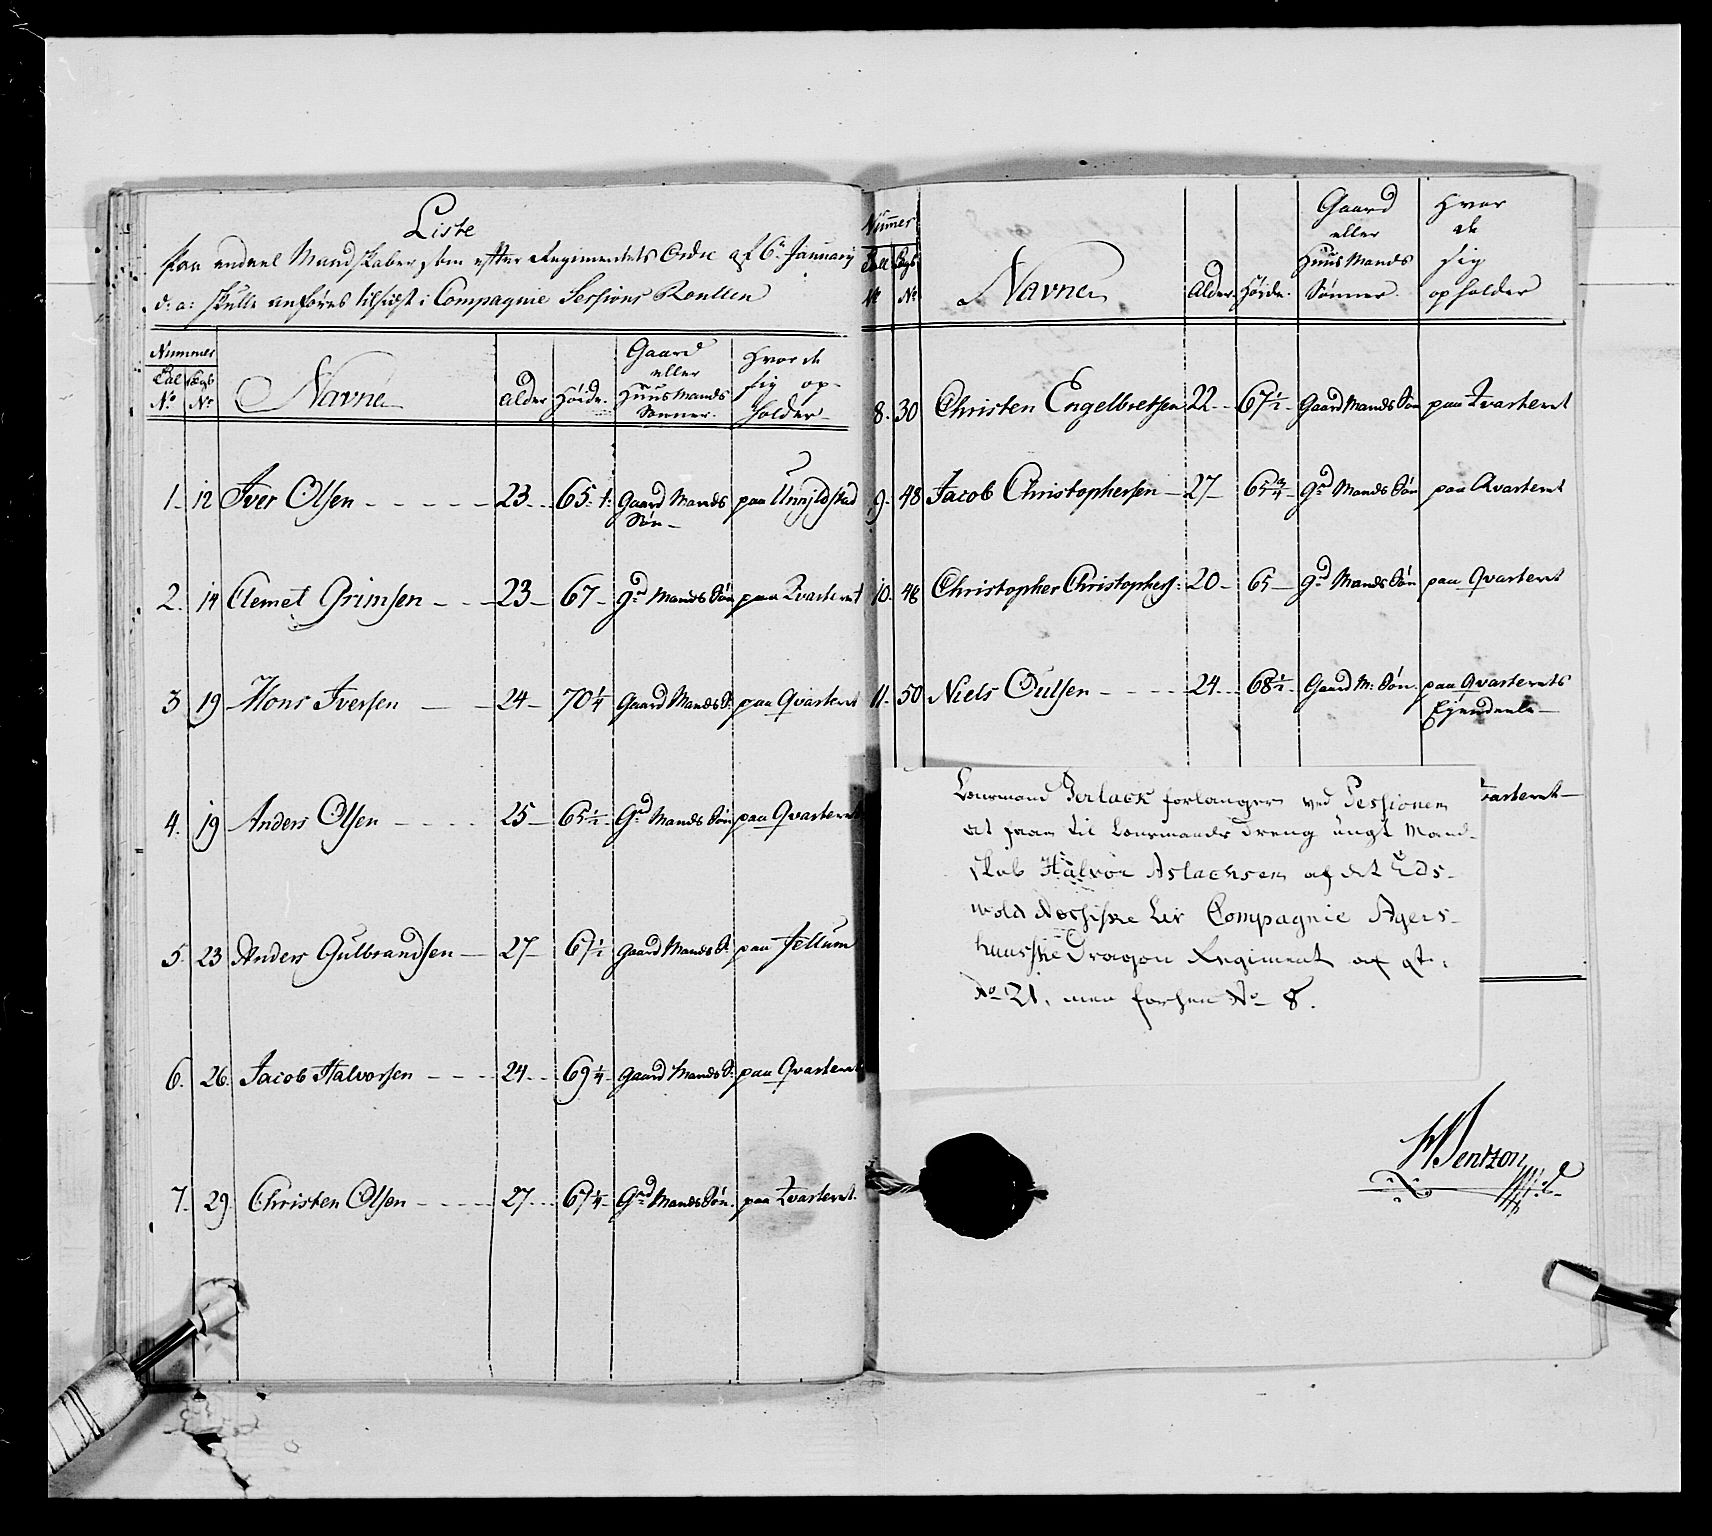 Liste
paa endeel Mandskaber, som efter Regimentets Ordre af 6t. January
d: a: skulle anføres tilsidst i Compagnie Sessions Roullen
Nummer
Gaard
Hvor de
eller
sig op-
Tal Lægs
Navne
Alder
Høide.
Huusmands
holder
No. No.
Sønner.
1. 12 Iver Olsen 23 65. 1: Gaard Mands Søn paa
2. 14 Clemet Grimsen 23 67 Gd. Mands Søn paa Qvarteret
3 19 Hans Iversen 24 70 1/4 Gaard Mands S. paa Qvarteret
4. 19 Anders Olsen 25 65 1/2 Gd. Mands Søn paa Qvarteret
5. 23 Anders Gulbrandsen 27 67 1/2 Gaard Mands S. paa Jellum
6. 26. Jacob Halvorsen 24 69 1/4 Gaard Mands S. paa Qvarteret
7. 29. Christen Olsen 27 67 1/4 Gd. Mands Søn. paa Qvarteret.
Nummer
Gaard
Hvor
eller
de
Tal Lægs
Huusmands
sig
No No
Navne
Alder.
Høide.
Sønner.
opholder
8. 30 Christen Engelbretsen 22 67 1/2 Gaard Mands Søn paa Qvarteret
9. 48 Jacob Christophersen 27 65 3/4 Gd. Mands Søn paa Qvarteret
10. 48 Christopher Christophers: 20 65 Gd. Mands Søn paa Qvarteret
11. 50 Niels Oulsen 24 68 1/2 Gaard M: Søn. paa Qvarterets
Ejendeele
varteret
Lensmand Gerlack forlanger ved Sessionen
at faae til Lensmands Dreng ungt Mand-
skab Halvor Aslachsen af det Eds-
wold Næssiske Liv Compagnie Agers-
huusiske Dragon Regiment af qt:
No 21, men forhen No 8.
Bentzon